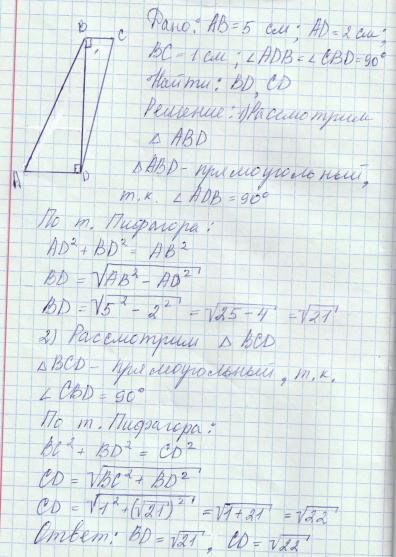 B C
A D
Дано: AB = 5 см; AD = 2 см;
BC - 1 см; ∠ADB = ∠CBD = 90°
Найти: BD, CD
Решение: 1) Рассмотрим
△ ABD
△ABD - прямоугольный,
т.к. ∠ADB = 90°
По т. Пифагора:
AD² + BD² = AB²
BD = √AB² - AD²
BD = √5² - 2² = √25 - 4 = √21
2) Рассмотрим △ BCD
△BCD - прямоугольный, т.к.
∠CBD = 90°
По т. Пифагора:
BC² + BD² = CD²
CD = √BC² + BD²
CD = √1² + (√21)² = √1 + 21 = √22
Ответ: BD = √21, CD = √22